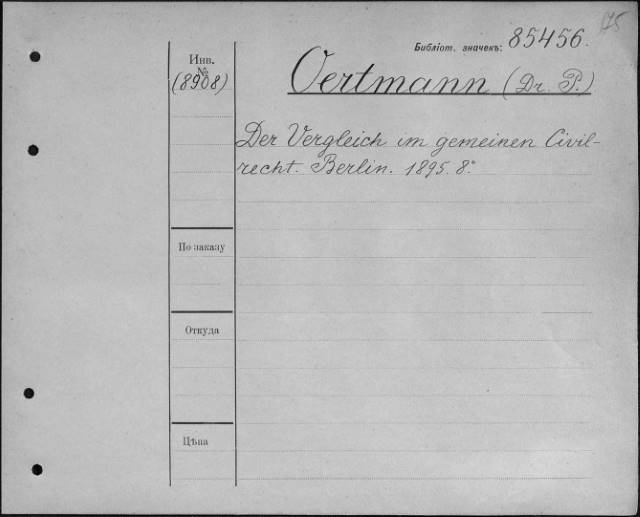 175
Библіот. значекъ: 85456.
Инв.
№
(8908)
Oertmann (Dr. P.)
Der Vergleich im gemeinen Civil-
recht. Berlin. 1895. 8.°
По заказу
Откуда
Цѣна